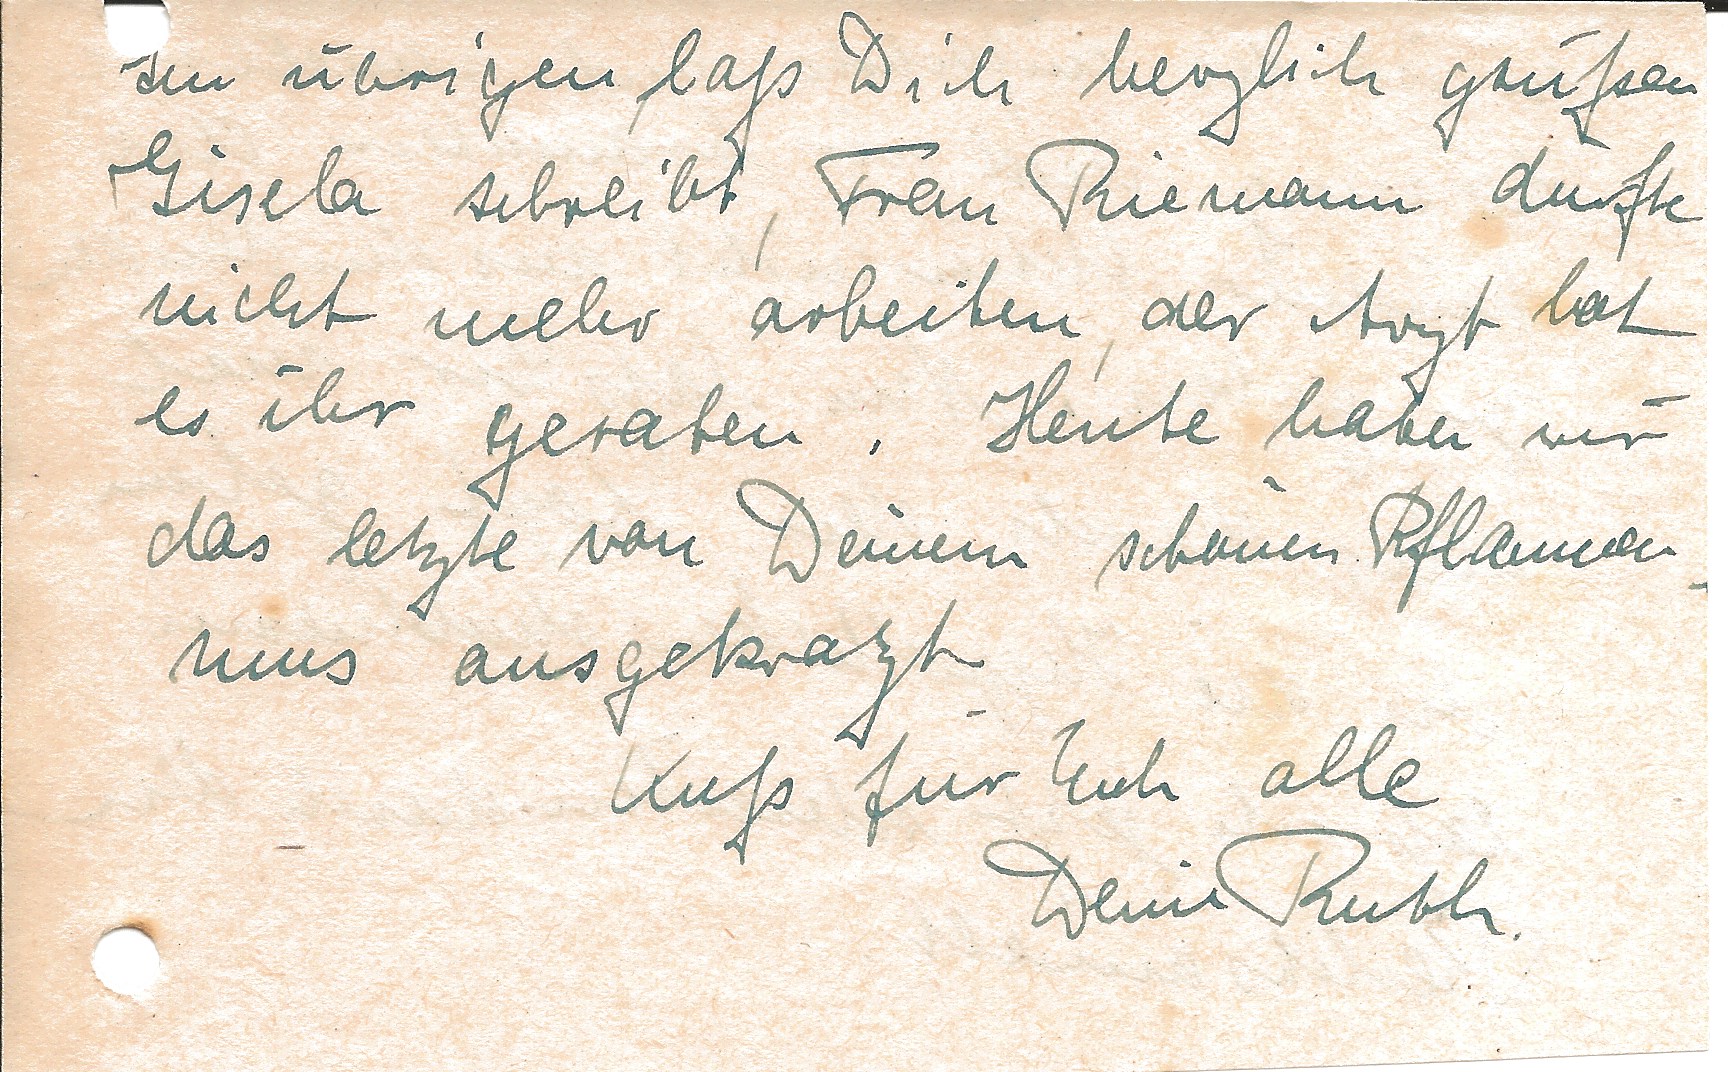 Im übrigen laß Dich herzlich grüßen
Gisela schreibt, Frau Riemann dürfte
nicht mehr arbeiten, der Arzt hat
es ihr geraten. Heute haben wir
das letzte von Deinem schönen Pflaumen-
mus ausgekratzt
Kuß für Euch alle
Deine Ruth.